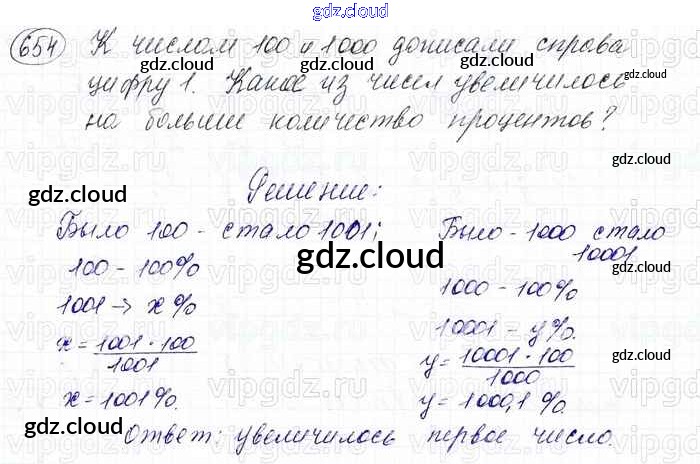 gdz.cloud
654 К числам 100 и 1000 дописали справа
цифру 1. Какое из чисел увеличилось
на больше количество процентов?
Решение:
Было 100 - стало 1001;
100 - 100%
1001 → x %
x = 1001 · 100 / 1001
x = 1001%.
Было - 1000 стало
10001
1000 - 100%
10001 - y%.
y = 10001 · 100 / 1000
y = 1000,1 %.
Ответ: увеличилось первое число.
gdz.cloud
gdz.cloud
gdz.cloud
gdz.cloud
gdz.cloud
gdz.cloud
gdz.cloud
gdz.cloud
gdz.cloud
gdz.cloud
gdz.cloud
gdz.cloud